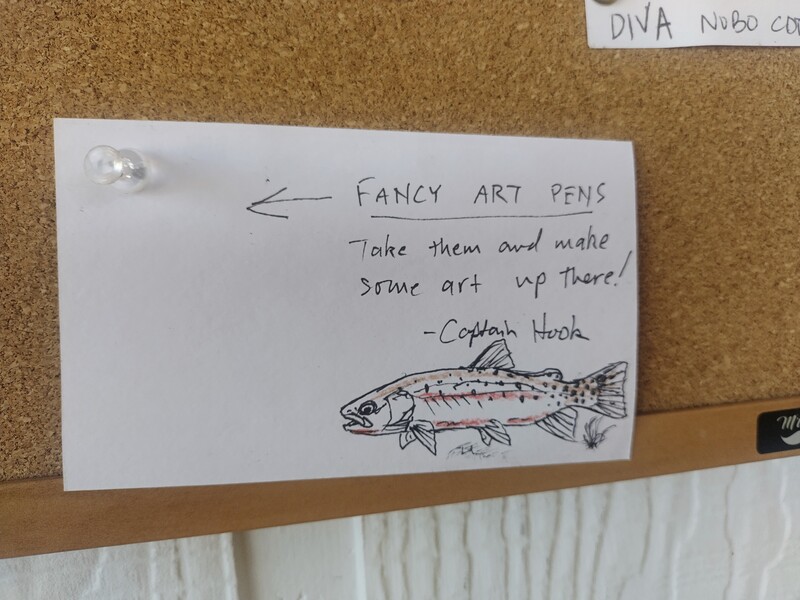 DIVA NOBO
FANCY ART PENS
Take them and make
some art up there!
-Captain Hook